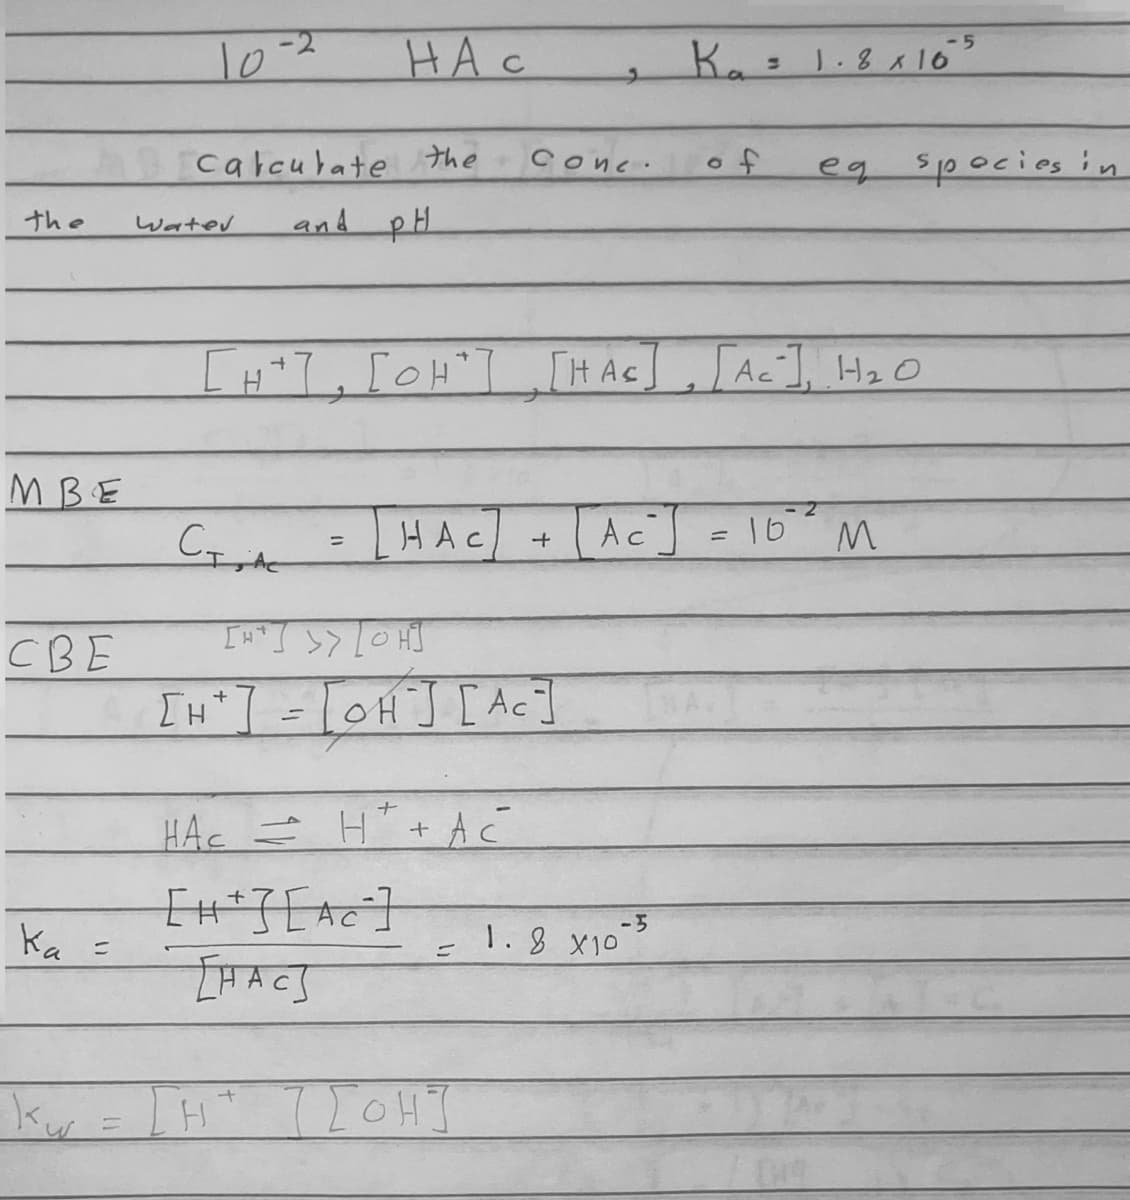 10⁻² HAc , Ka = 1.8 x 10⁻⁵
Calculate the conc. of eq species in
the water and pH
[H⁺], [OH⁺], [HAc], [Ac⁻], H₂O
MBE
C_T,Ac = [HAc] + [Ac⁻] = 10⁻² M
CBE [H⁺] >> [OH⁻]
[H⁺] = [OH⁻] [Ac⁻]
HAc ⇌ H⁺ + Ac⁻
ka = [H⁺][Ac⁻] / [HAc] = 1.8 x10⁻⁵
kw = [H⁺] [OH⁻]